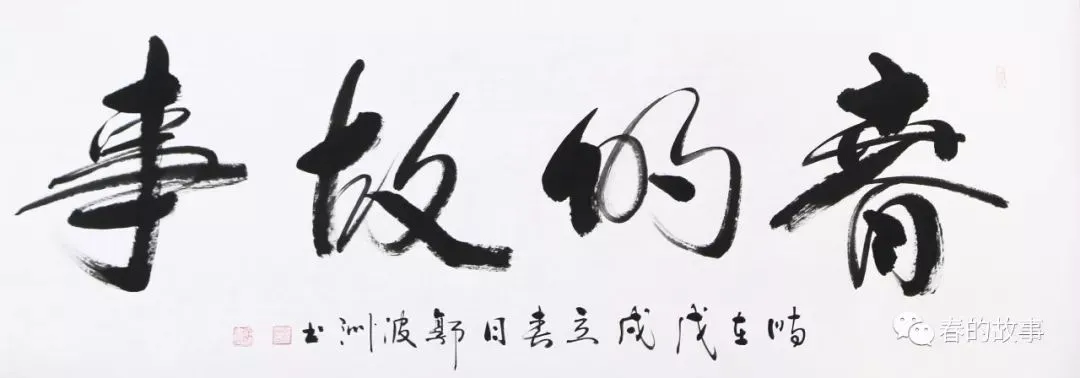 春的故事
時在戊戌立春日波洲书
春的故事